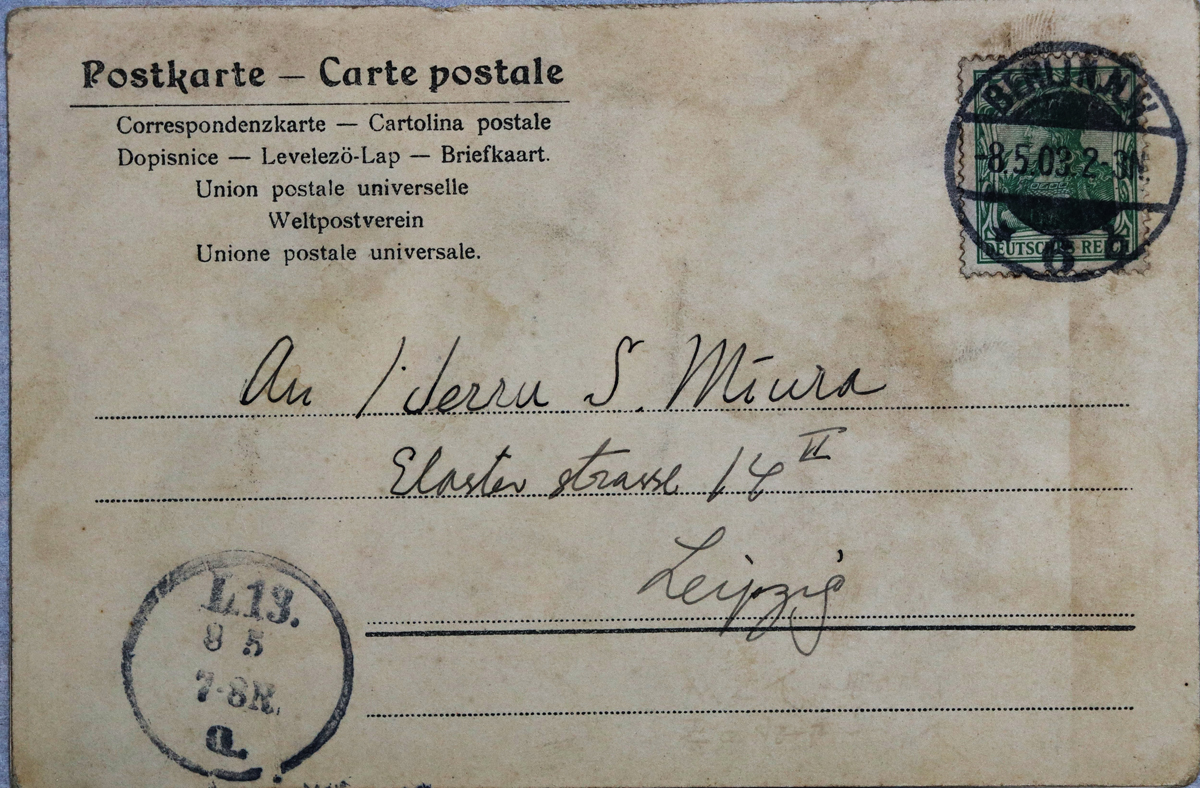 Postkarte — Carte postale
Correspondenzkarte — Cartolina postale
Dopisnice — Levelezö-Lap — Briefkaart.
Union postale universelle
Weltpostverein
Unione postale universale.
BERLIN.N.W.
-8.5.03.2-3N.
* 6 b
DEUTSCHES REICH
An Herrn S. Miura
Elaster strasse 14 II
Leipzig
L.13.
8 5
7-8N.
a.